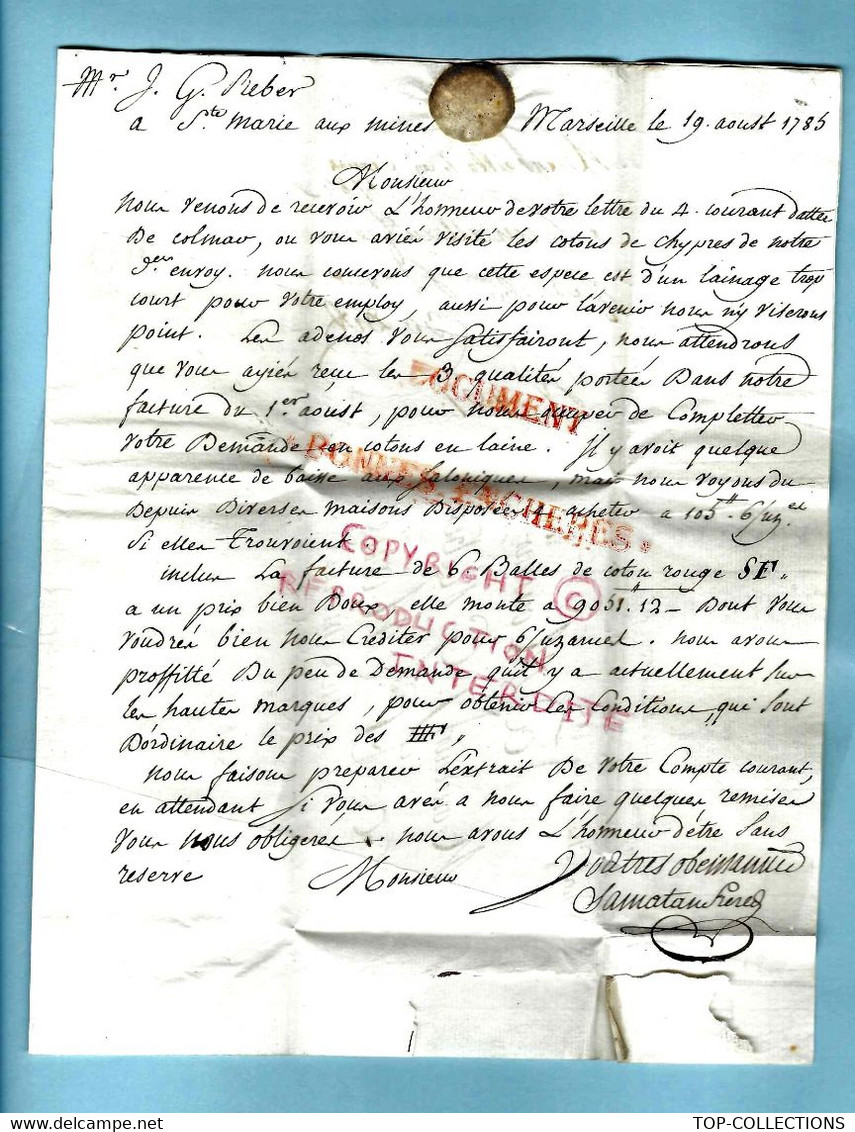 Mr. J. G. Reber
a Ste. Marie aux mines Marseille le 19. aoust 1785
Monsieur
nous venons de recevoir L'honneur de votre lettre du 4. courant dattée
De colmar, ou vous aviés visité les cotons de chypres de notre
der. envoy. nous concevons que cette espece est d'un lainage trop
court pour votre employ, aussi pour l'avenir nous n'y viserons
point. Les adenos vous satisfairont, nous attendrons
que vous ayiés reçu les 3 qualités portées Dans notre
facture du 1.er aoust, pour nous occuper de Completter
votre Demande en cotons en laine. Il y avoit quelque
apparence de baisse aux saloniques, mais nous voyons du
Depuis Diverses maisons Disposées a acheter a 105.# 6/uz.el
si elles Trouvoient.
inclus La facture de 6. Balles de coton rouge SF,
a un prix bien Doux, elle monte a 9051.# 12 – Dont vous
voudrés bien nous Créditer pour 6/uzances. nous avons
proffitté Du peu de Demande qu'il y a actuellement sur
les hautes marques, pour obtenir ces Conditions, qui sont
D'ordinaire le prix des
nous faisons preparer L'extrait De votre Compte courant,
en attendant si vous avés a nous faire quelques remises
vous nous obligerés. nous avons L'honneur d'être sans
reserve Monsieur Vostres obeissants
Samatan freres
DOCUMENT
BONNES ENCHERES.
COPYRIGHT ©
REPRODUCTION
INTERDITE
TOP-COLLECTIONS